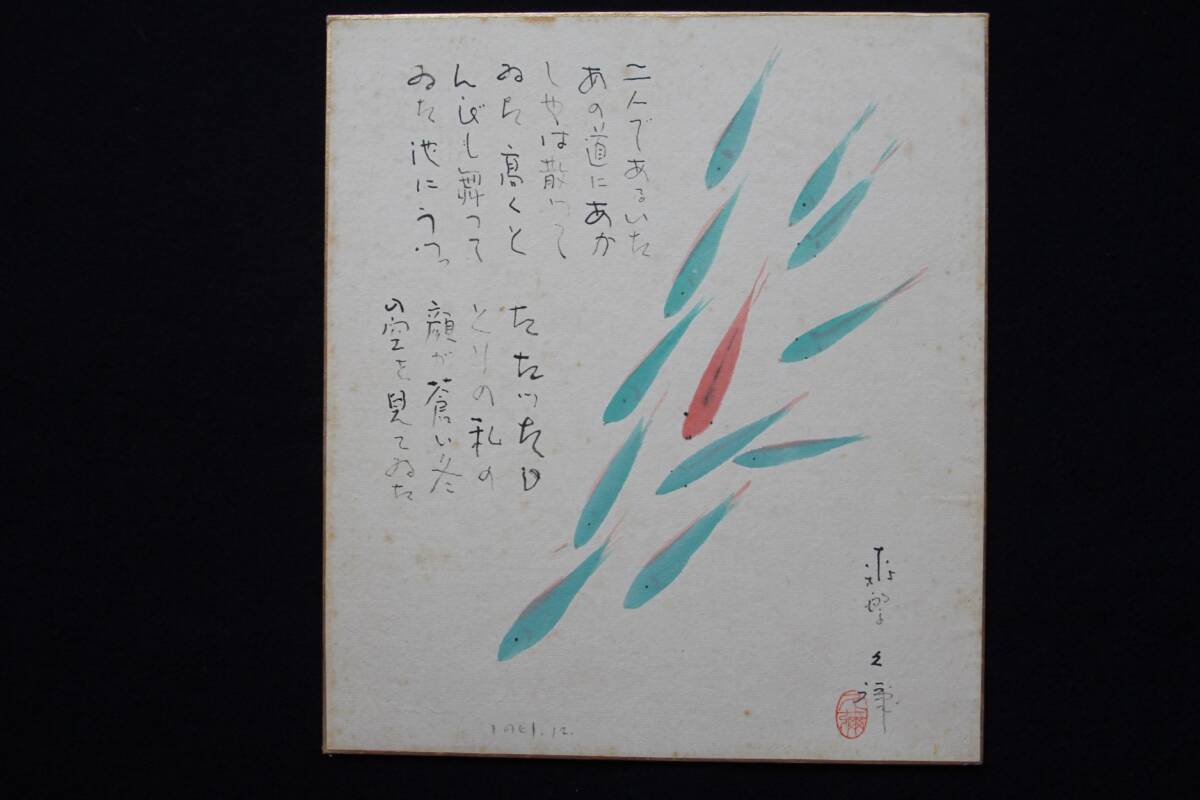 二人であるいた
あの道にあか
しやは散って
ゐた高くと
んびも舞って
ゐた池にうつっ
たたったひ
とりの私の
顔が蒼い冬
の空を見てゐた